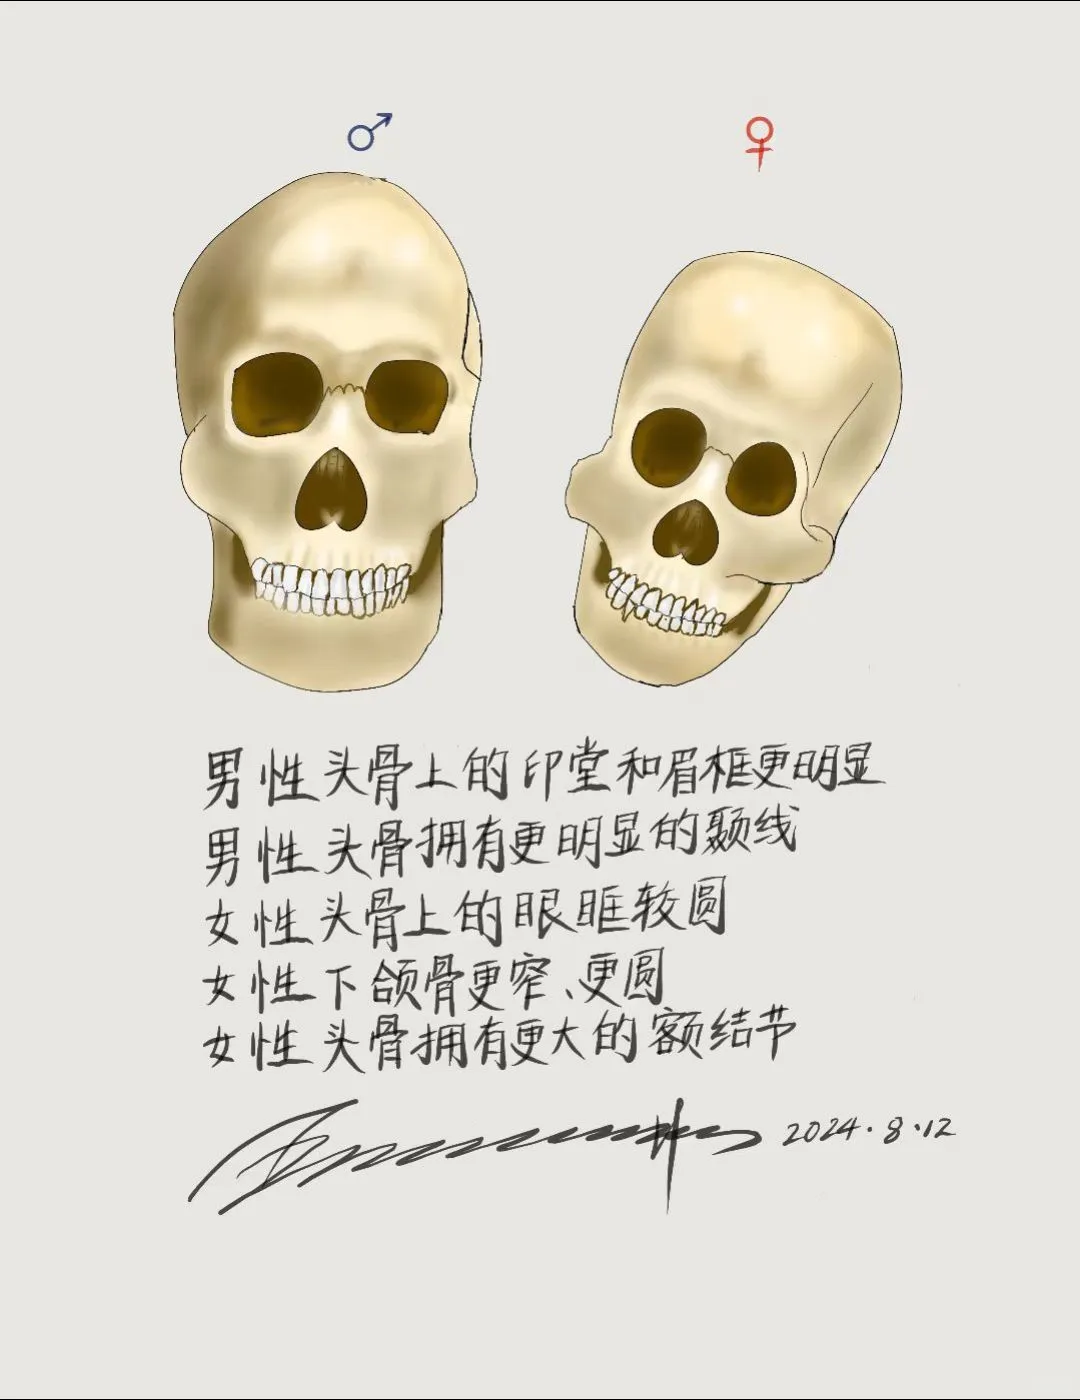 ♂ ♀
男性头骨上的印堂和眉框更明显
男性头骨拥有更明显的颞线
女性头骨上的眼眶较圆
女性下颌骨更窄、更圆
女性头骨拥有更大的额结节
2024.8.12